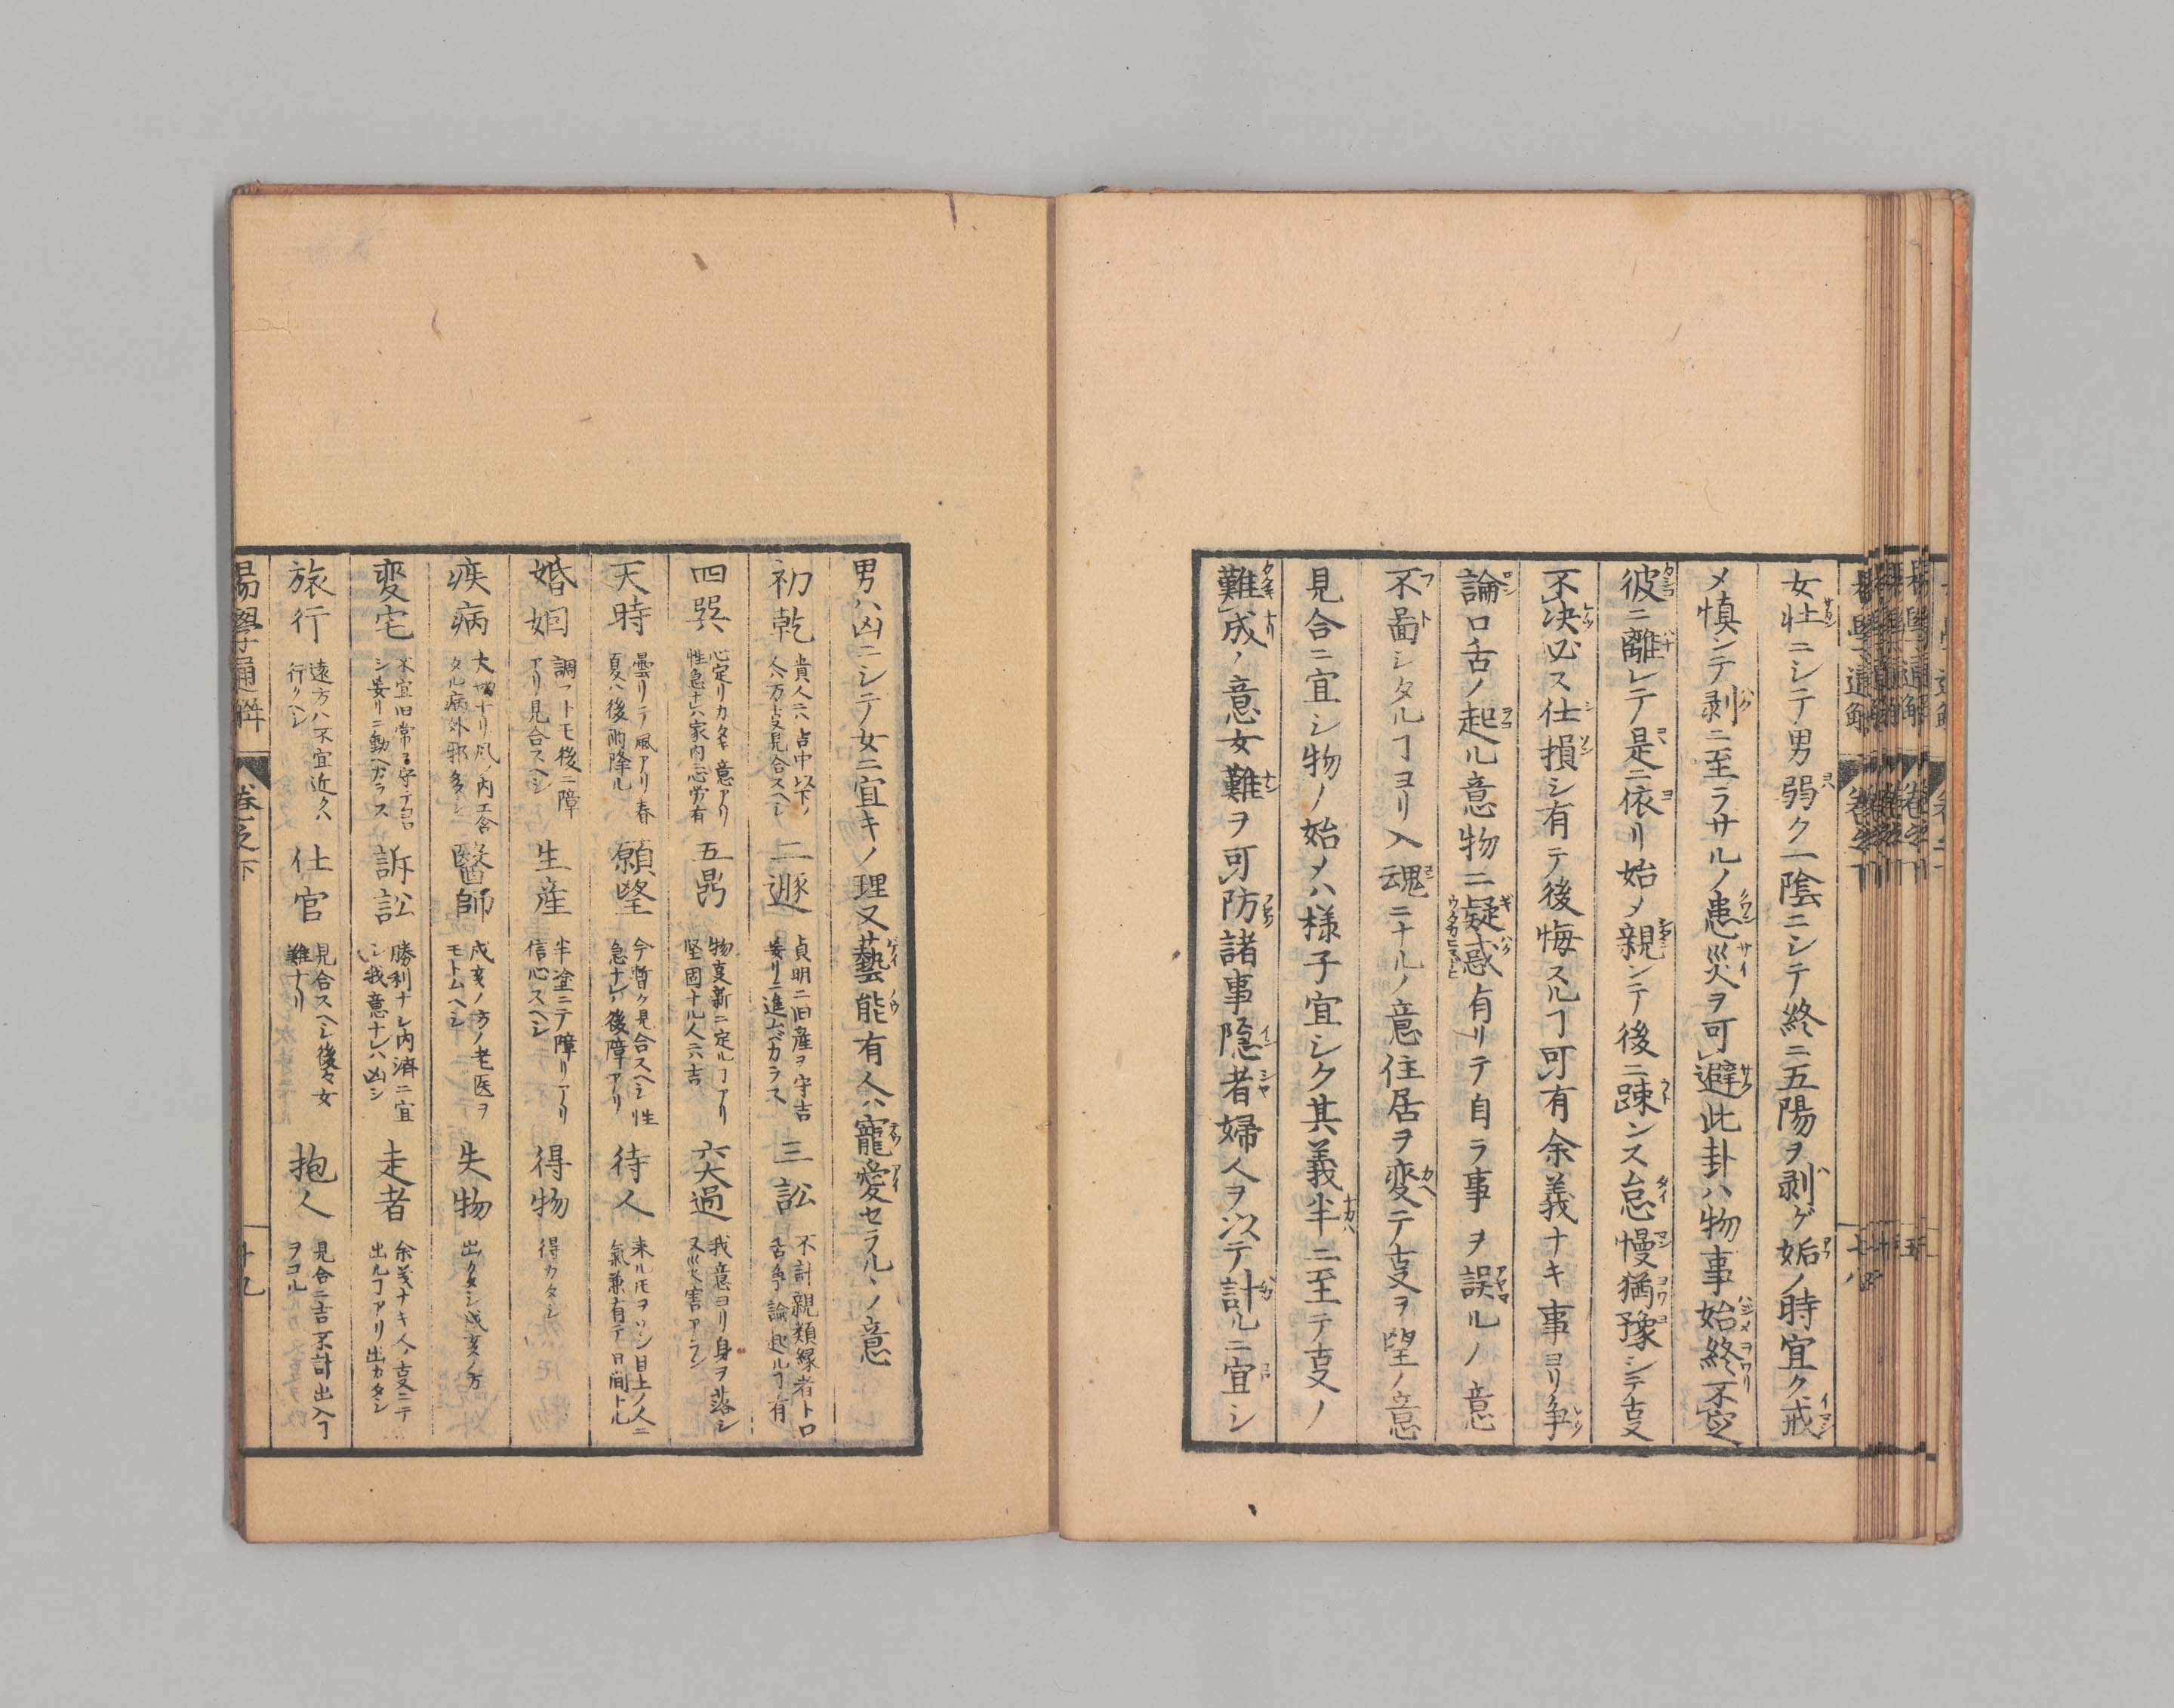 女壮ニシテ男弱ク一陰ニシテ終ニ五陽ヲ剥ゲ姤ノ時宜ク戒
メ慎ンテ剥ニ至ラサルノ患災ヲ可避此卦ハ物事始終不定
彼ニ離レテ是ニ依リ始メ親ンテ後ニ踈ンス怠慢猶豫シテ叓
不決必ス仕損シ有テ後悔スルヿ可有余義ナキ事ヨリ争
論口舌ノ起ル意物ニ疑惑有リテ自ラ事ヲ誤ルノ意
不圖シタルヿヨリ入魂ニナルノ意住居ヲ変テ叓ヲ望ノ意
見合ニ宜シ物ノ始メハ様子宜シク其義半ニ至テ叓ノ
難成ノ意女難ヲ可防諸事隠者婦人ヲ以テ計ルニ宜シ
男ハ凶ニシテ女ニ宜キノ理又藝能有人ハ寵愛セラルヽノ意
初乾 貴人ニハ占中以下ノ
人ハ万叓見合スヘシ
二遯 貞明ニ旧産ヲ守吉
妄リニ進ムベカラス
三訟 不計親類縁者ト口
舌争論起ルヿ有
四巽 心定リカタキ意アリ
性急ナ六家内心労有
五鼎 物叓新ニ定ルヿアリ
堅固ナル人六吉
六大過 我意ヨリ身ヲ落シ
又災害アラン
天時 曇リテ風アリ春
夏ハ後雨降ル
願望 今暫ク見合スヘシ性
急ナレハ後障アリ
待人 来ルモヲソシ目上ノ人ニ
氣兼有テ日間トル
婚姻 調フトモ後ニ障
アリ見合スヘシ
生産 半塗ニテ障リアリ
信心スヘシ
得物 得カタシ
疾病 大切ナリ凡ノ内エ含
タル病外邪多シ
醫師 戌亥ノ方ノ老医ヲ
モトムヘシ
失物 出カタシ戌亥ノ方
変宅 不宜旧常ヲ守テヨロ
シ妄リニ動ヘカラス
訴訟 勝利ナレ内済ニ宜
シ我意ナレハ凶シ
走者 余義ナキ人ノ叓ニテ
出ルヿアリ出カタシ
旅行 遠方ハ不宜近クハ
行クヘシ
仕官 見合スヘシ後々女
難ナリ
抱人 見合ニ吉不計出入ヿ
ヲコル
易學通解 卷之下 十九